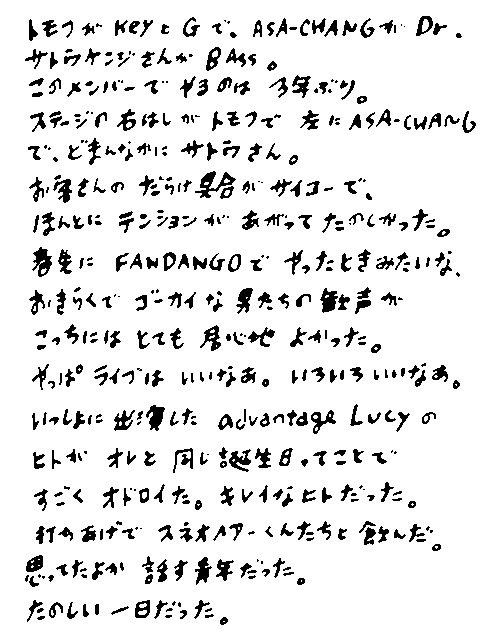 トモフがKeyとGで、ASA-CHANGがDr.
サトウケンジさんがBAss。
このメンバーでやるのは3年ぶり。
ステージの右はしがトモフで左にASA-CHANG
で、どまんなかにサトウさん。
お客さんのだらけ具合がサイコーで、
ほんとにテンションがあがってたのしかった。
春先にFANDANGOでやったときみたいな、
おきらくでゴーカイな男たちの歓声が
こっちにはとても居心地よかった。
やっぱライブはいいなあ。いろいろいいなあ。
いっしょに出演したadvantage Lucyの
ヒトがオレと同じ誕生日ってことで
すごくオドロイた。キレイなヒトだった。
打ちあげでスネオヘアーくんたちと飲んだ。
思ってたよか話す青年だった。
たのしい一日だった。